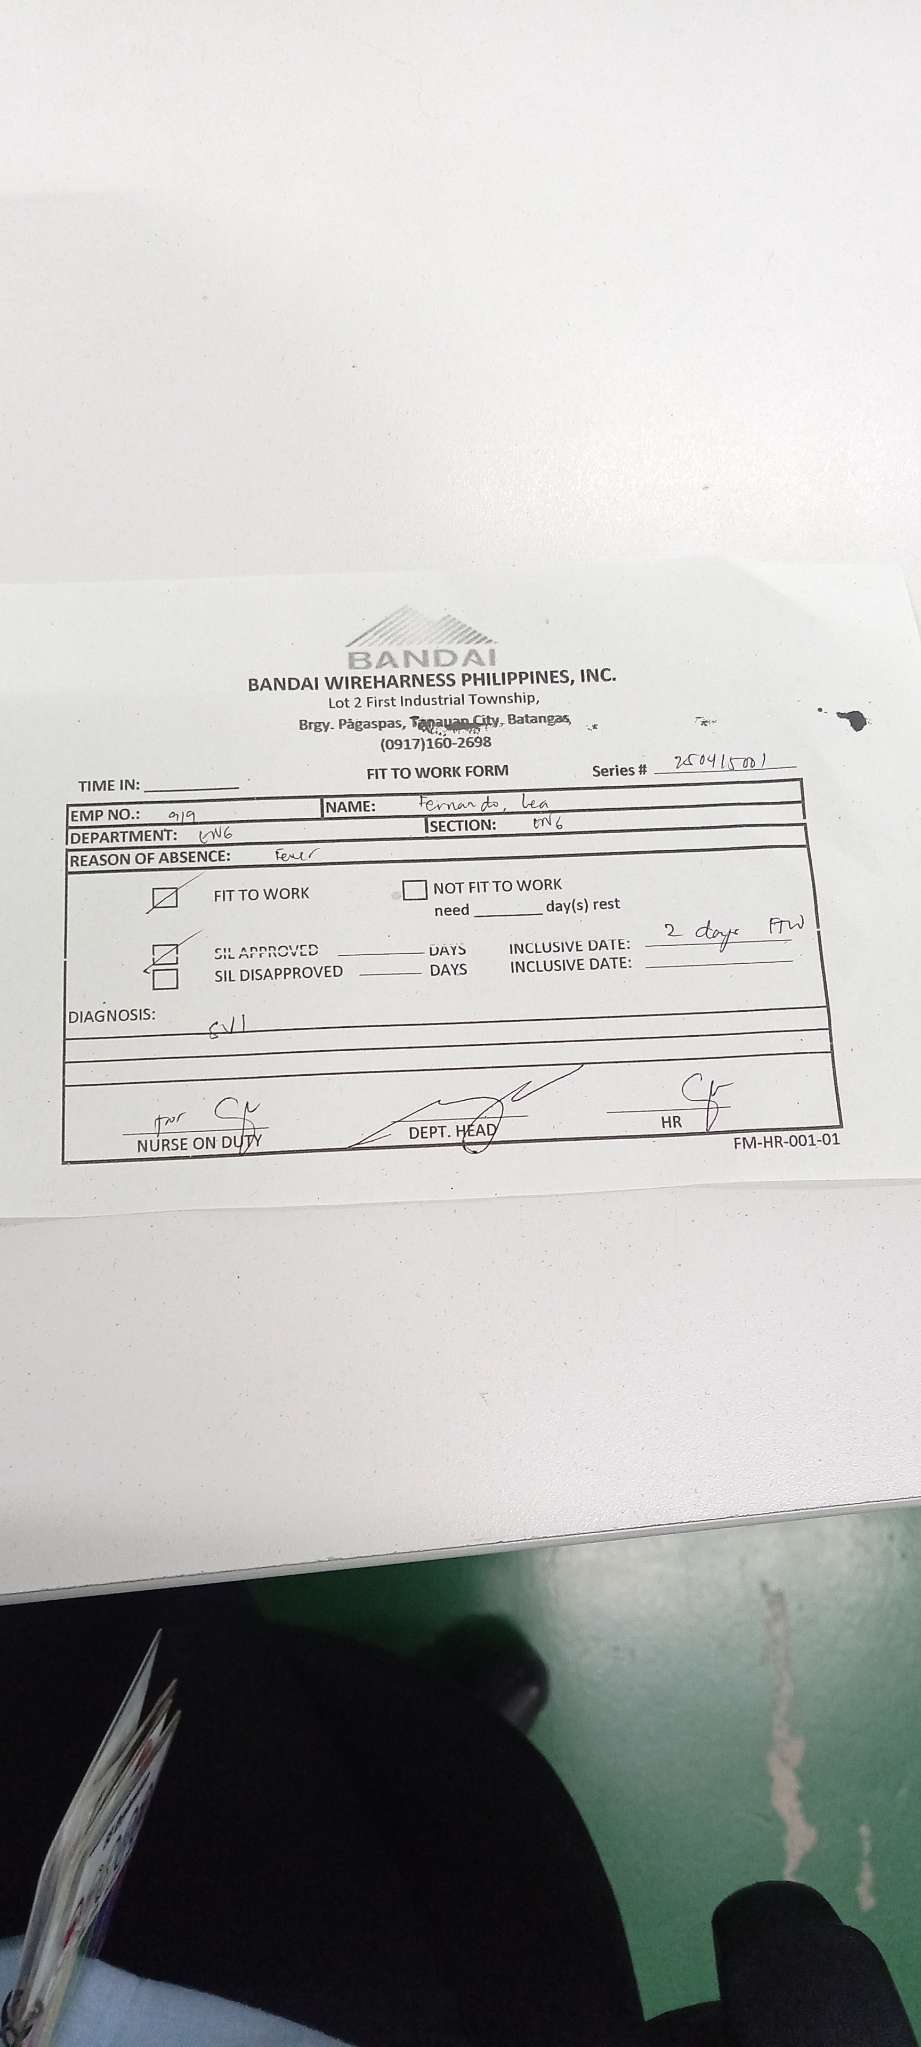 BANDAI
BANDAI WIREHARNESS PHILIPPINES, INC.
Lot 2 First Industrial Township,
Brgy. Pagaspas, Tanauan City, Batangas,
(0917)160-2698
TIME IN: FIT TO WORK FORM Series # 250415001
EMP NO.: 919 NAME: Fernando, Lea
DEPARTMENT: ENG SECTION: ENG
REASON OF ABSENCE: Fever
FIT TO WORK NOT FIT TO WORK
need day(s) rest
SIL APPROVED DAYS INCLUSIVE DATE: 2 days FTW
SIL DISAPPROVED DAYS INCLUSIVE DATE:
DIAGNOSIS: SVI
NURSE ON DUTY DEPT. HEAD HR
FM-HR-001-01